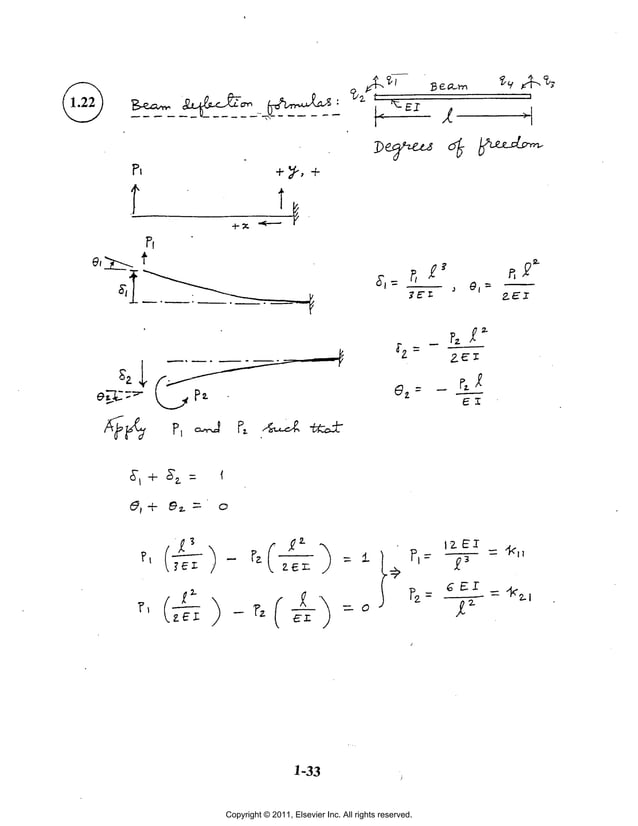 1.22 Beam deflection formulas:
q₁ Beam q₄ q₃
q₂ EI
l
Degrees of freedom
P₁ +y, +
+x
P₁
θ₁
δ₁
δ₁ = P₁ l³ / 3EI , θ₁ = P₁ l² / 2EI
δ₂ = - P₂ l² / 2EI
δ₂
θ₂ P₂
θ₂ = - P₂ l / EI
Apply P₁ and P₂ such that
δ₁ + δ₂ = 1
θ₁ + θ₂ = 0
P₁ (l³ / 3EI) - P₂ (l² / 2EI) = 1 } ⇒ P₁ = 12EI / l³ = k₁₁
P₁ (l² / 2EI) - P₂ (l / EI) = 0 P₂ = 6EI / l² = k₂₁
1-33
Copyright © 2011, Elsevier Inc. All rights reserved.